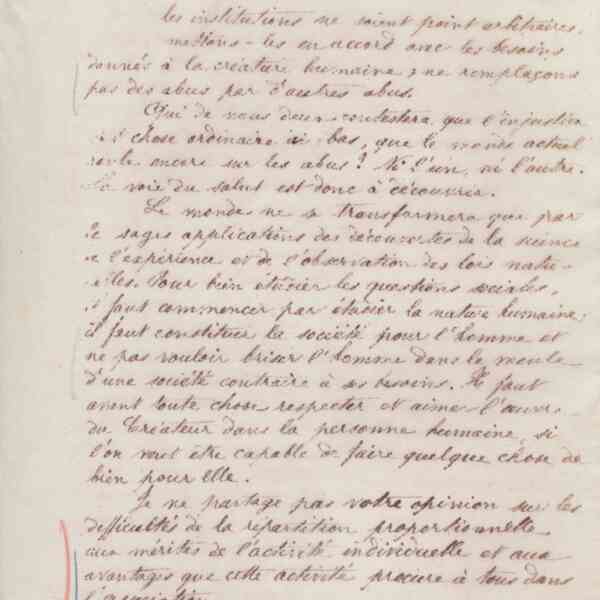 les institutions ne soient point arbitraires,
mettons-les en accord avec les besoins
donnés à la créature humaine, ne remplaçons
pas des abus par d'autres abus.
Qui de nous deux contestera que l'injustice
est chose ordinaire ici bas, que le monde actuel
roule encore sur les abus? Ni l'un, ni l'autre.
La voie du salut est donc à découvrir.
Le monde ne se transformera que par
de sages applications des découvertes de la science
de l'expérience et de l'observation des lois natu-
relles. Pour bien étudier les questions sociales,
il faut commencer par étudier la nature humaine;
il faut constituer la société pour l'homme et
ne pas vouloir briser l'homme dans le moule
d'une société contraire à ses besoins. Il faut
avant toute chose respecter et aimer l'œuvre
du Créateur dans la personne humaine, si
l'on veut être capable de faire quelque chose de
bien pour elle.
Je ne partage pas votre opinion sur les
difficultés de la répartition proportionnelle
aux mérites de l'activité individuelle et aux
avantages que cette activité procure à tous dans
l'association